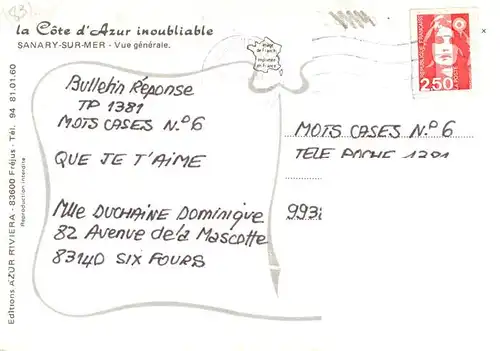 la Côte d'Azur inoubliable
SANARY-SUR-MER - Vue générale.
Bulletin Réponse
TP 1381
MOTS CASES N.º 6
QUE JE T'AIME
Mlle DUCHAINE Dominique
82 Avenue de la Mascotte
83140 SIX FOURS
REPUBLIQUE FRANÇAISE
2,50
LA POSTE
MOTS CASES N.º 6
TELE POCHE 1201
Editions AZUR RIVIERA - 83600 Fréjus - Tél. 94 81.01.60
Reproduction interdite